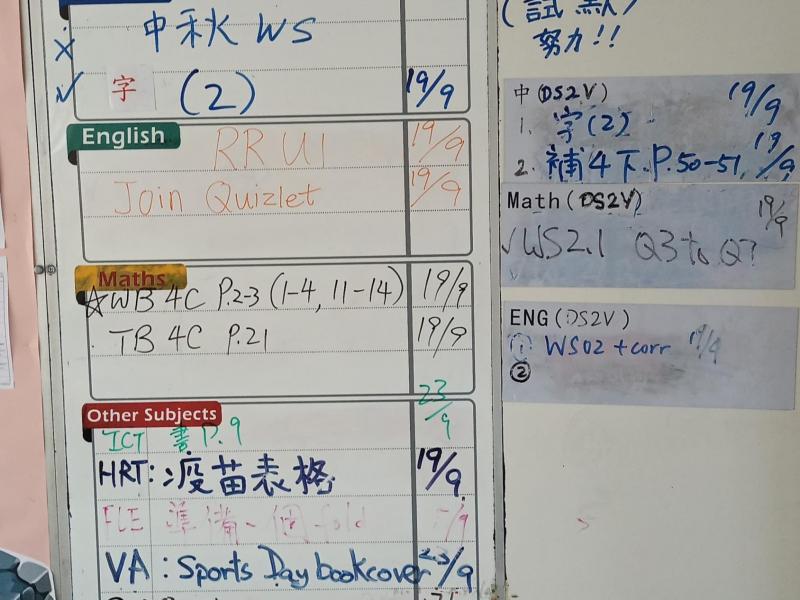 中秋 WS
字 (2) 19/9
English
RR U1 19/9
Join Quizlet 19/9
Maths
☆WB 4C P.2-3 (1-4, 11-14) 19/9
TB 4C P.21 19/9
Other Subjects
ICT 書 P.9 23/9
HRT: 疫苗表格 19/9
FLE 準備一個 fold
VA : Sports Day bookcover 23/9
努力!!
中(DS2V) 19/9
1. 字(2)
2. 補4下.P.50-51, 19/9
Math(DS2V) 19/9
✓WS2.1 Q3 to Q7
ENG(DS2V)
① WS02 + corr 19/9
②